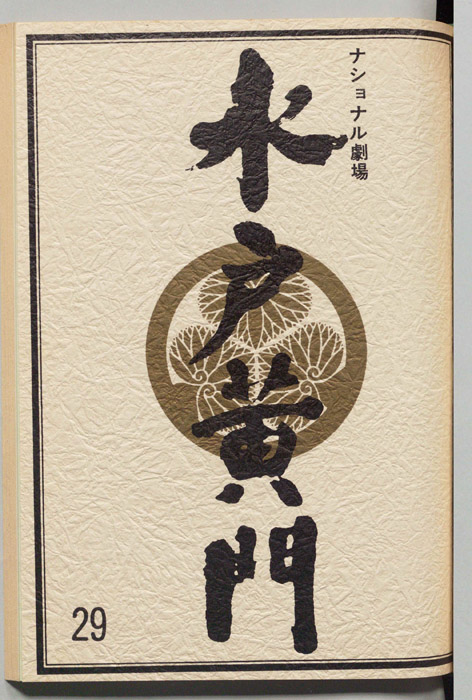 ナショナル劇場
水戸黄門
29